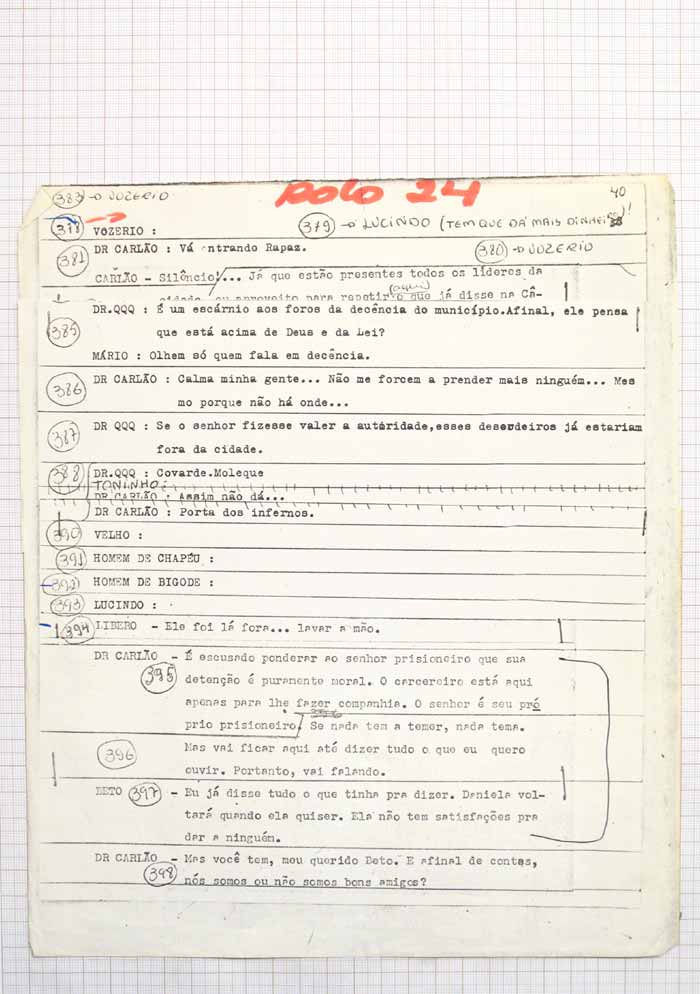 383 → VOZERIO
ROLO 24
40
378 VOZERIO :
379 → LUCINDO (TEM QUE DÁ MAIS DINHEIRO)!
DR CARLÃO : Vá entrando Rapaz.
381
380 → VOZERIO
CARLÃO - Silêncio!... Já que estão presentes todos os líderes da
(aqui)
cidade, eu aproveito para repetir o que já disse na Câ-
DR.QQQ : É um escárnio aos foros da decência do município.Afinal, ele pensa
385
que está acima de Deus e da Lei?
MÁRIO : Olhem só quem fala em decência.
386 DR CARLÃO : Calma minha gente... Não me forcem a prender mais ninguém... Mes
mo porque não há onde...
387 DR QQQ : Se o senhor fizesse valer a autoridade,esses desordeiros já estariam
fora da cidade.
388 DR.QQQ : Covarde.Moleque
TONINHO :
DR CARLÃO : Assim não dá...
DR CARLÃO : Porta dos infernos.
390 VELHO :
391 HOMEM DE CHAPÉU :
392 HOMEM DE BIGODE :
393 LUCINDO :
394 LIBERO - Ele foi lá fora... lavar a mão.
DR CARLÃO - É escusado ponderar ao senhor prisioneiro que sua
395 detenção é puramente moral. O carcereiro está aqui
apenas para lhe fazer companhia. O senhor é seu pró
396
prio prisioneiro. Se nada tem a temer, nada tema.
396 Mas vai ficar aqui até dizer tudo o que eu quero
ouvir. Portanto, vai falando.
BETO 397 - Eu já disse tudo o que tinha pra dizer. Daniela vol-
tará quando ela quiser. Ela não tem satisfações pra
dar a ninguém.
DR CARLÃO - Mas você tem, meu querido Beto. E afinal de contas,
398 nós somos ou não somos bons amigos?